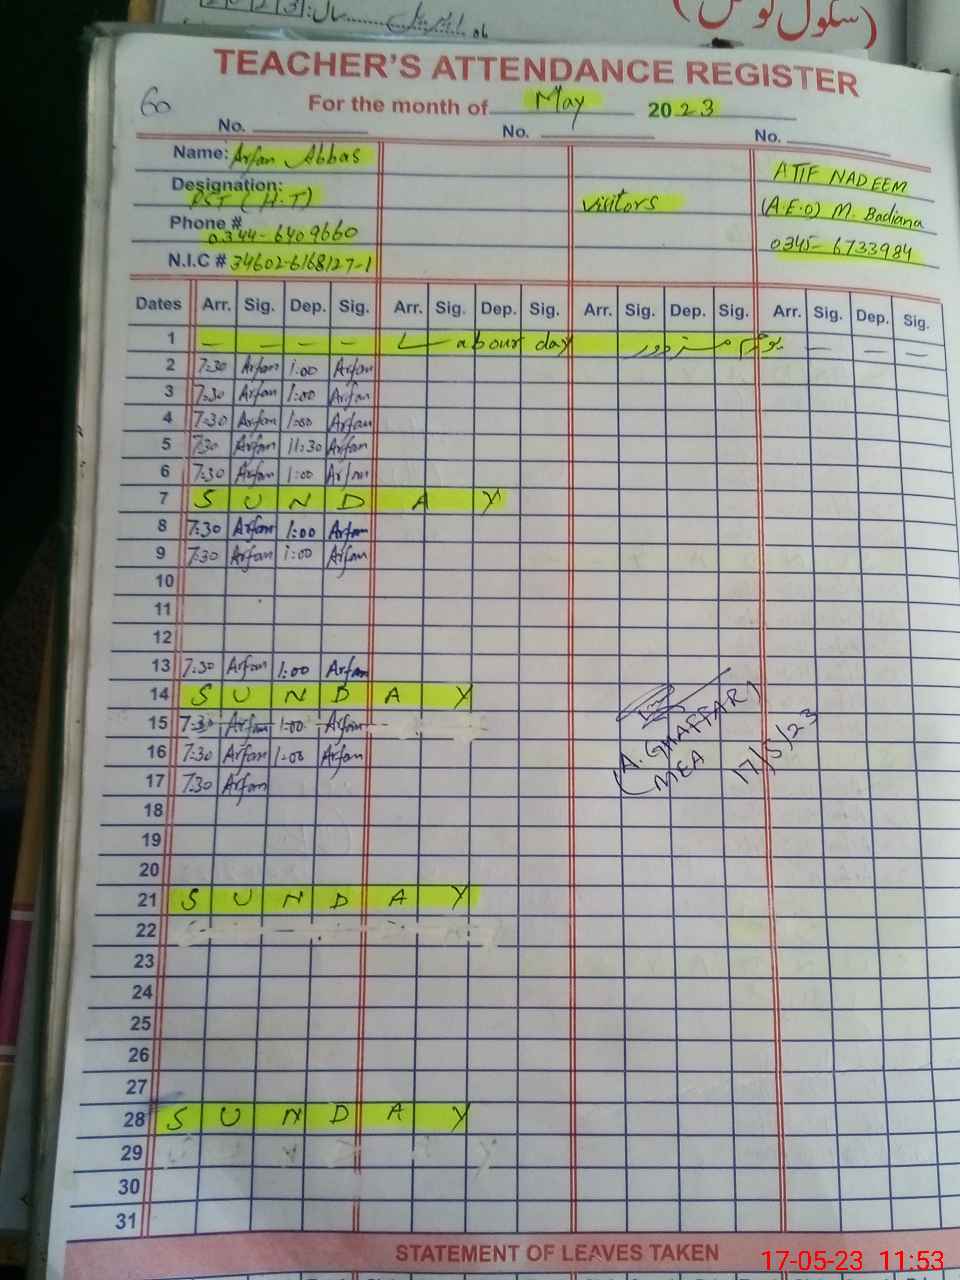 2023 سال: اپریل ماہ
(سکول نوٹس)
TEACHER'S ATTENDANCE REGISTER
60
For the month of May 2023
No. No. No.
Name: Arfan Abbas
Designation: PST (H.T)
Phone # 0344-6409660
N.I.C # 34602-6168127-1
Visitors
ATIF NADEEM
(A.E.O) M. Badiana
0345-6733984
Dates Arr. Sig. Dep. Sig. Arr. Sig. Dep. Sig. Arr. Sig. Dep. Sig. Arr. Sig. Dep. Sig.
1 — — — — Labour day یوم مزدور — — —
2 7:30 Arfan 1:00 Arfan
3 7:30 Arfan 1:00 Arfan
4 7:30 Arfan 1:00 Arfan
5 7:30 Arfan 11:30 Arfan
6 7:30 Arfan 1:00 Arfan
7 S U N D A Y
8 7:30 Arfan 1:00 Arfan
9 7:30 Arfan 1:00 Arfan
10
11
12
13 7:30 Arfan 1:00 Arfan
14 S U N D A Y
15 7:30 Arfan 1:00 Arfan
16 7:30 Arfan 1:00 Arfan
17 7:30 Arfan
(A. GHAFFAR)
MEA
17/5/23
18
19
20
21 S U N D A Y
22
23
24
25
26
27
28 S U N D A Y
29
30
31
STATEMENT OF LEAVES TAKEN
17-05-23 11:53